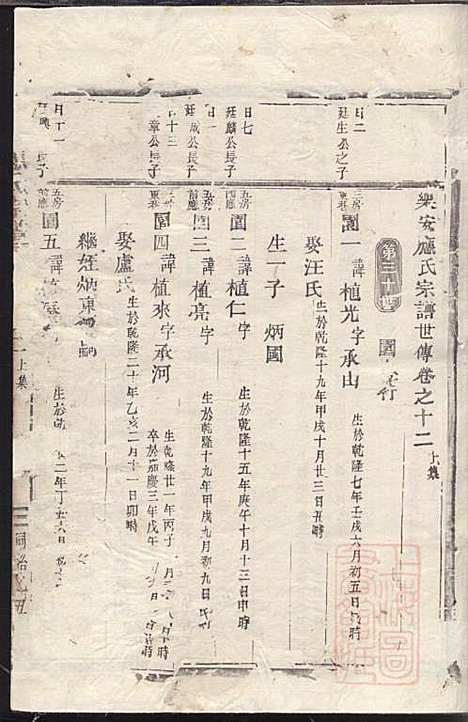 樂安盧氏宗譜世傳卷之十二 上集
第三十世 園行
日二
廷生公之子
三房
東巷
園一 諱植光字承山 生於乾隆七年壬戌六月初五日時
娶汪氏 生於乾隆十九年甲戌十月廿三日丑時
生一子 炳國
日七
廷麟公長子
五房
前應
園二 諱植仁 字 生於乾隆十五年庚午十月十三日申時
日一
廷成公長子
五房
前應
園三 諱植亮 字 生於乾隆十九年甲戌九月初九日時
日十三
章公長子
三房
東巷
園四 諱植來字承河 生乾隆廿一年丙子月日時
卒於嘉慶三年戊午月日時
娶盧氏 生於乾隆二十年乙亥二月十一日卯時
繼姪炳東為嗣
日十一
長子
五房
前應
園五 諱植 生於乾隆二年丁丑六日
上集
同治乙丑